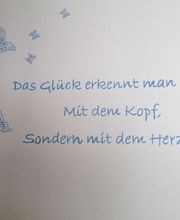 Das Glück erkennt man
Mit dem Kopf,
Sondern mit dem Herz